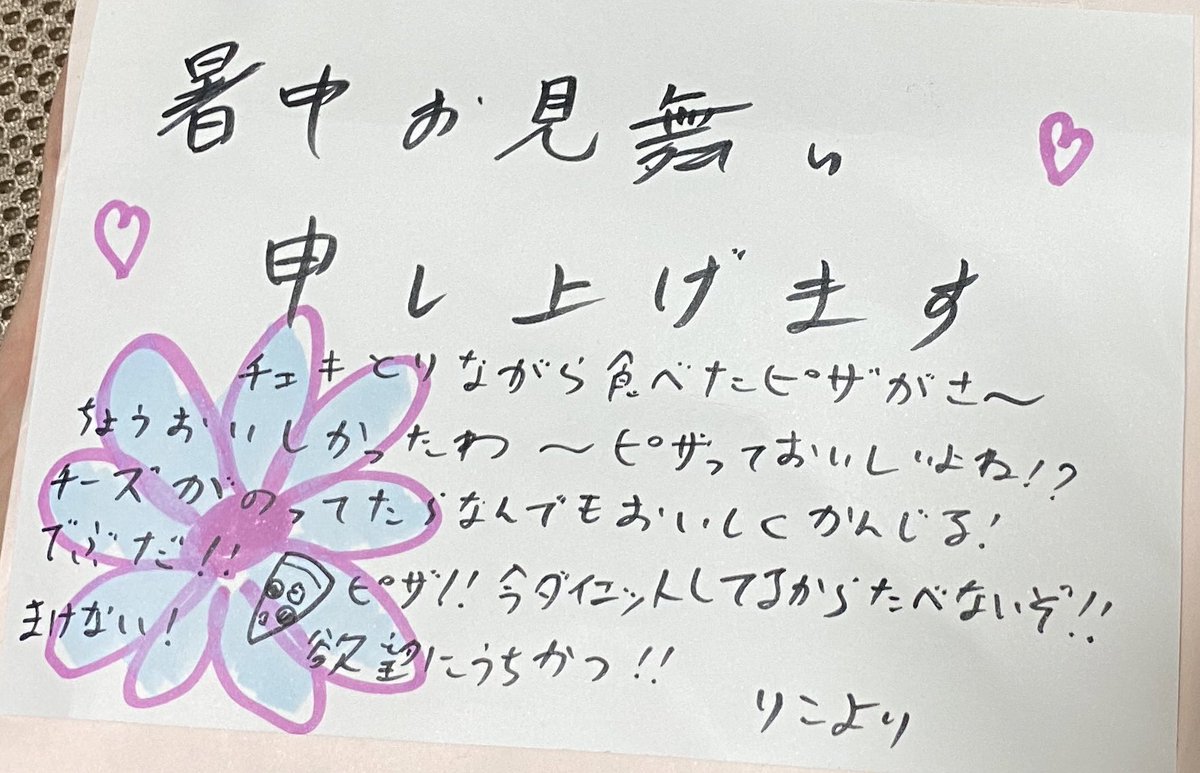 暑中お見舞い
申し上げます
チェキとりながら食べたピザがさ〜
ちょうおいしかったわ〜ピザっておいしいよね!?
チーズがのってたらなんでもおいしくかんじる!
でぶだ!! ピザ!! 今ダイエットしてるからたべないぞ!!
まけない! 欲望にうちかつ!!
りこより